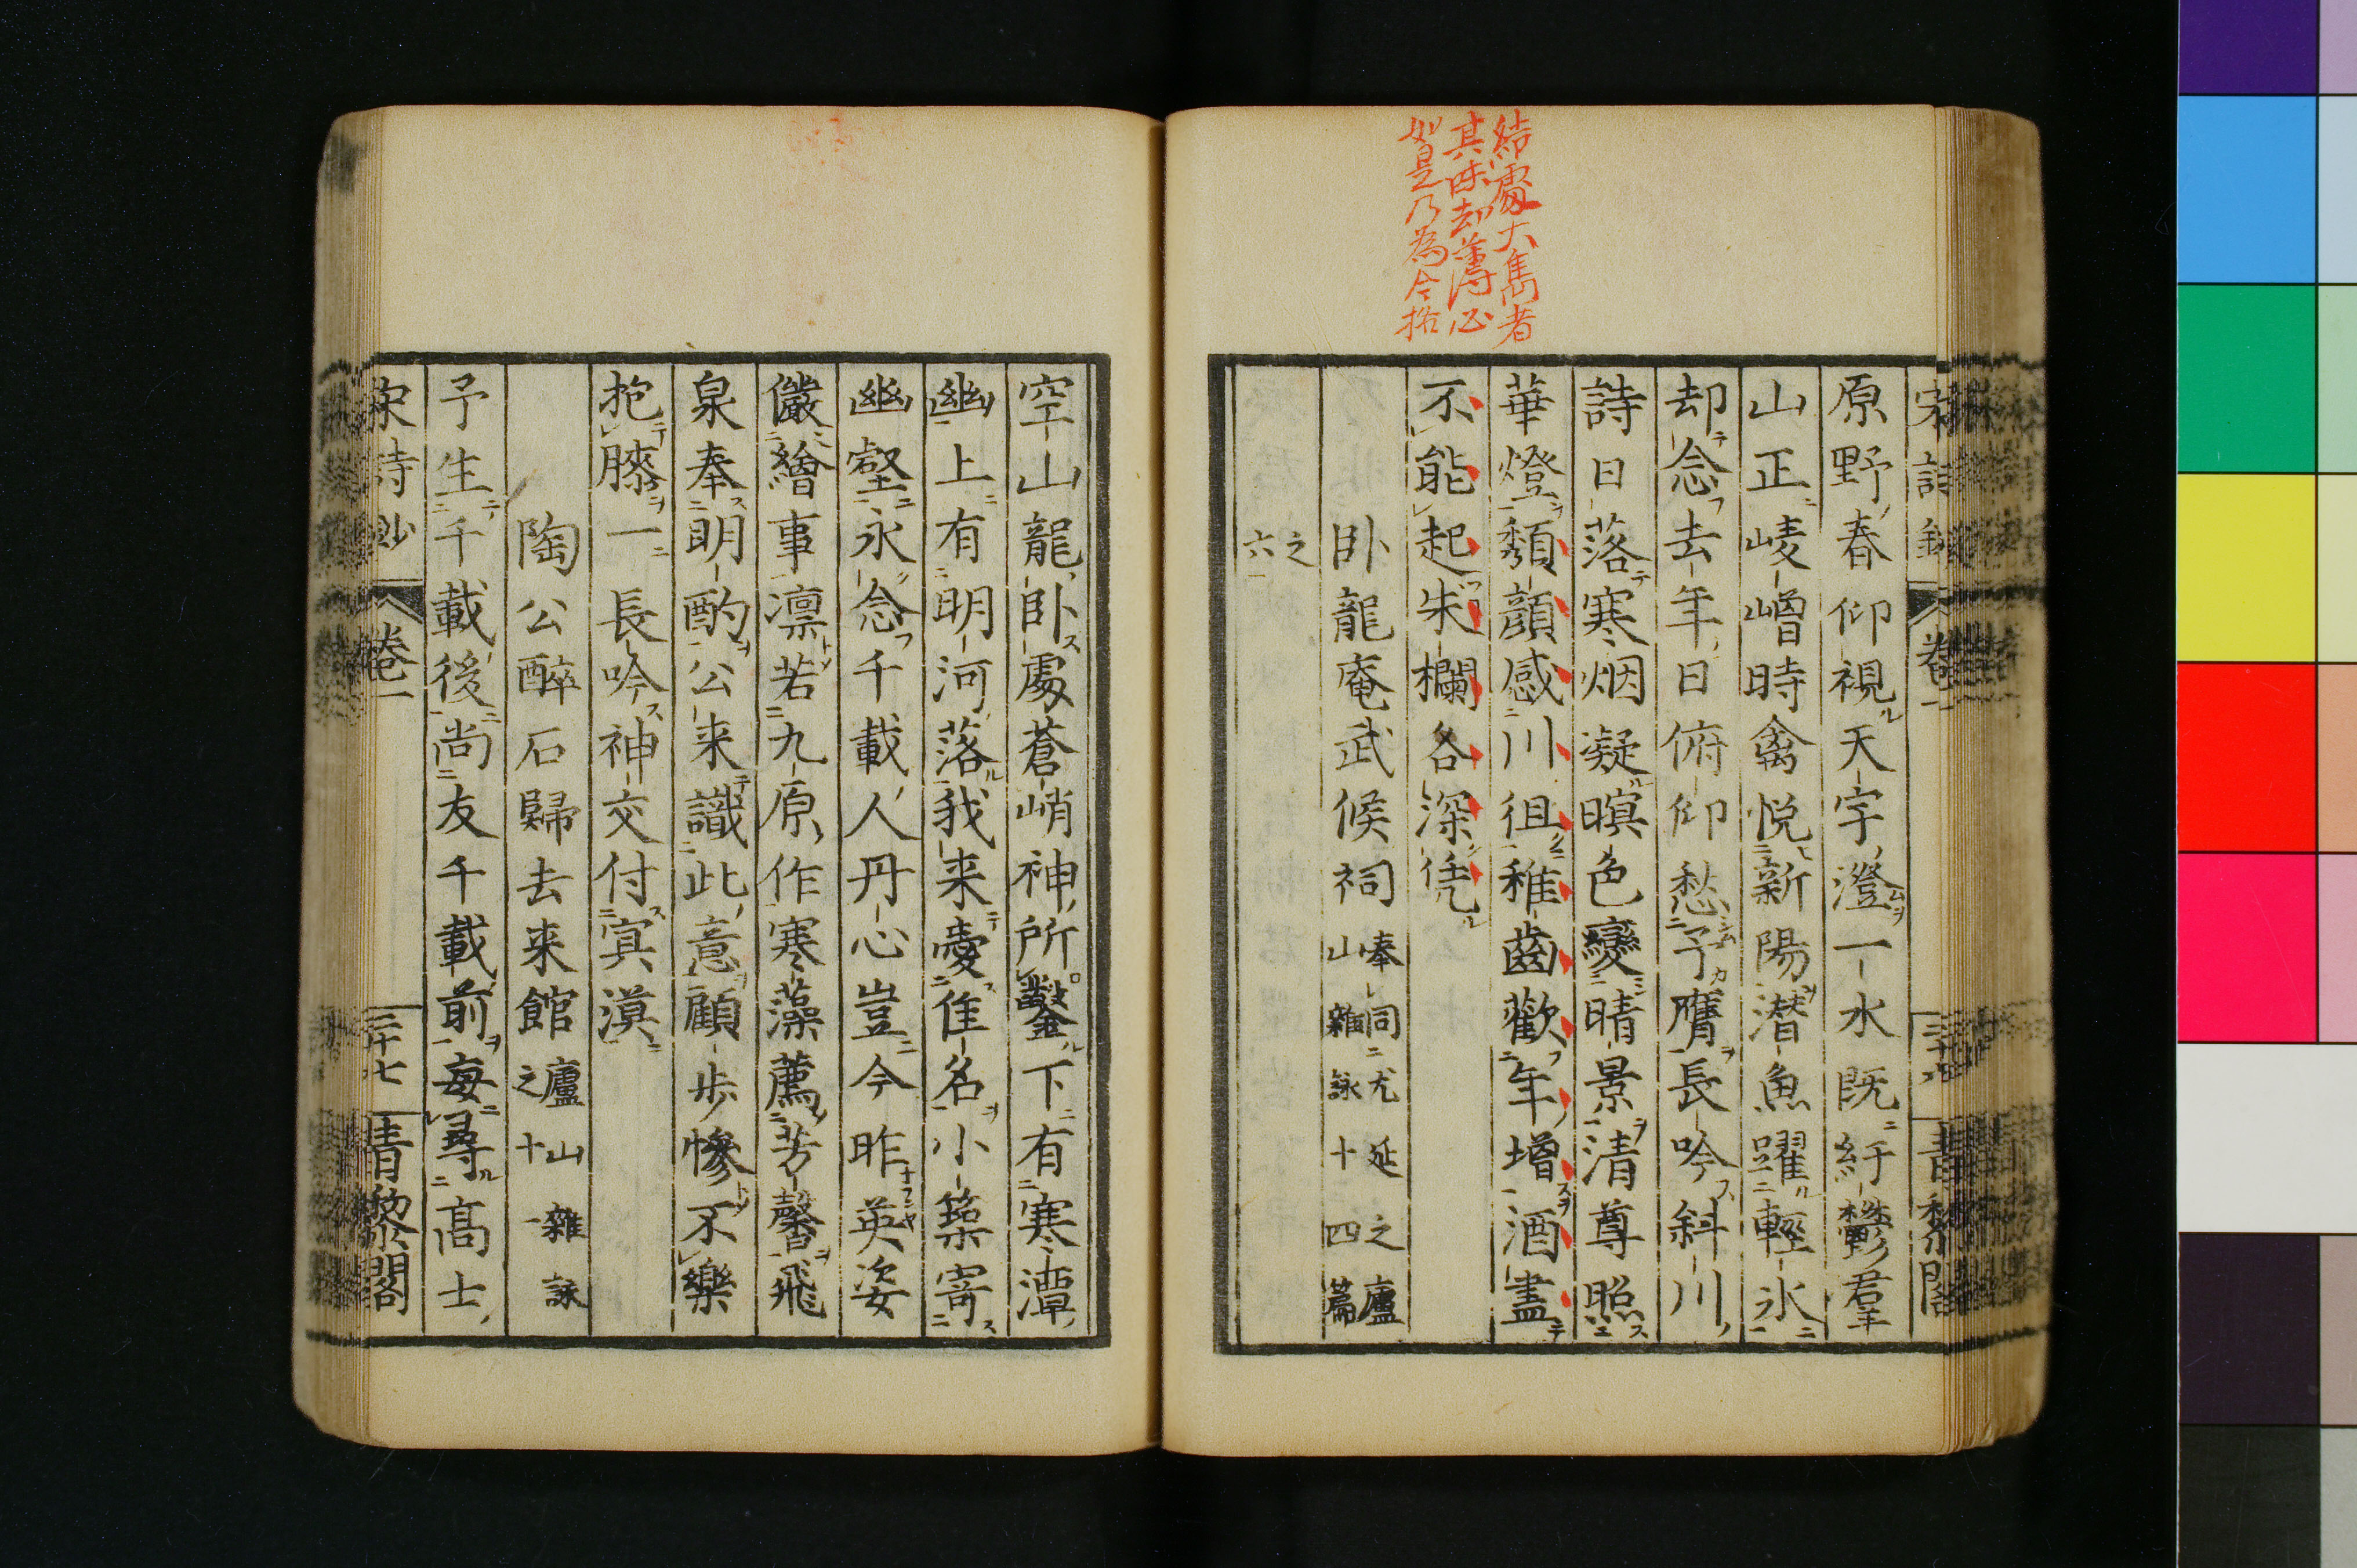 結處大雋者
其味却薄必
如是乃為合拍
宋詩鈔 卷一
原野春仰視天宇澄一水既紆鬱羣
山正崚嶒時禽悦新陽潜魚躍輕氷
却念去年日俯仰愁予膺長吟斜川
詩日落寒烟凝暝色變晴景清尊照
華燈頽顔感川徂稚齒歡年增酒盡
不能起朱欄各深凭
卧龍庵武候祠 奉同尤延之廬
山雜詠十四篇
之
六
空山龍卧處蒼峭神所鑿下有寒潭
幽上有明河落我来愛佳名小築寄
幽壑永念千載人丹心豈今昨英姿
儼繪事凛若九原作寒藻薦芳馨飛
泉奉明酌公来識此意顧歩惨不樂
抱膝一長吟神交付㝠漠
陶公醉石歸去来館 廬山雜詠
之十一
予生千載後尚友千載前每尋髙士
宋詩鈔 卷一 三十七 青黎閣